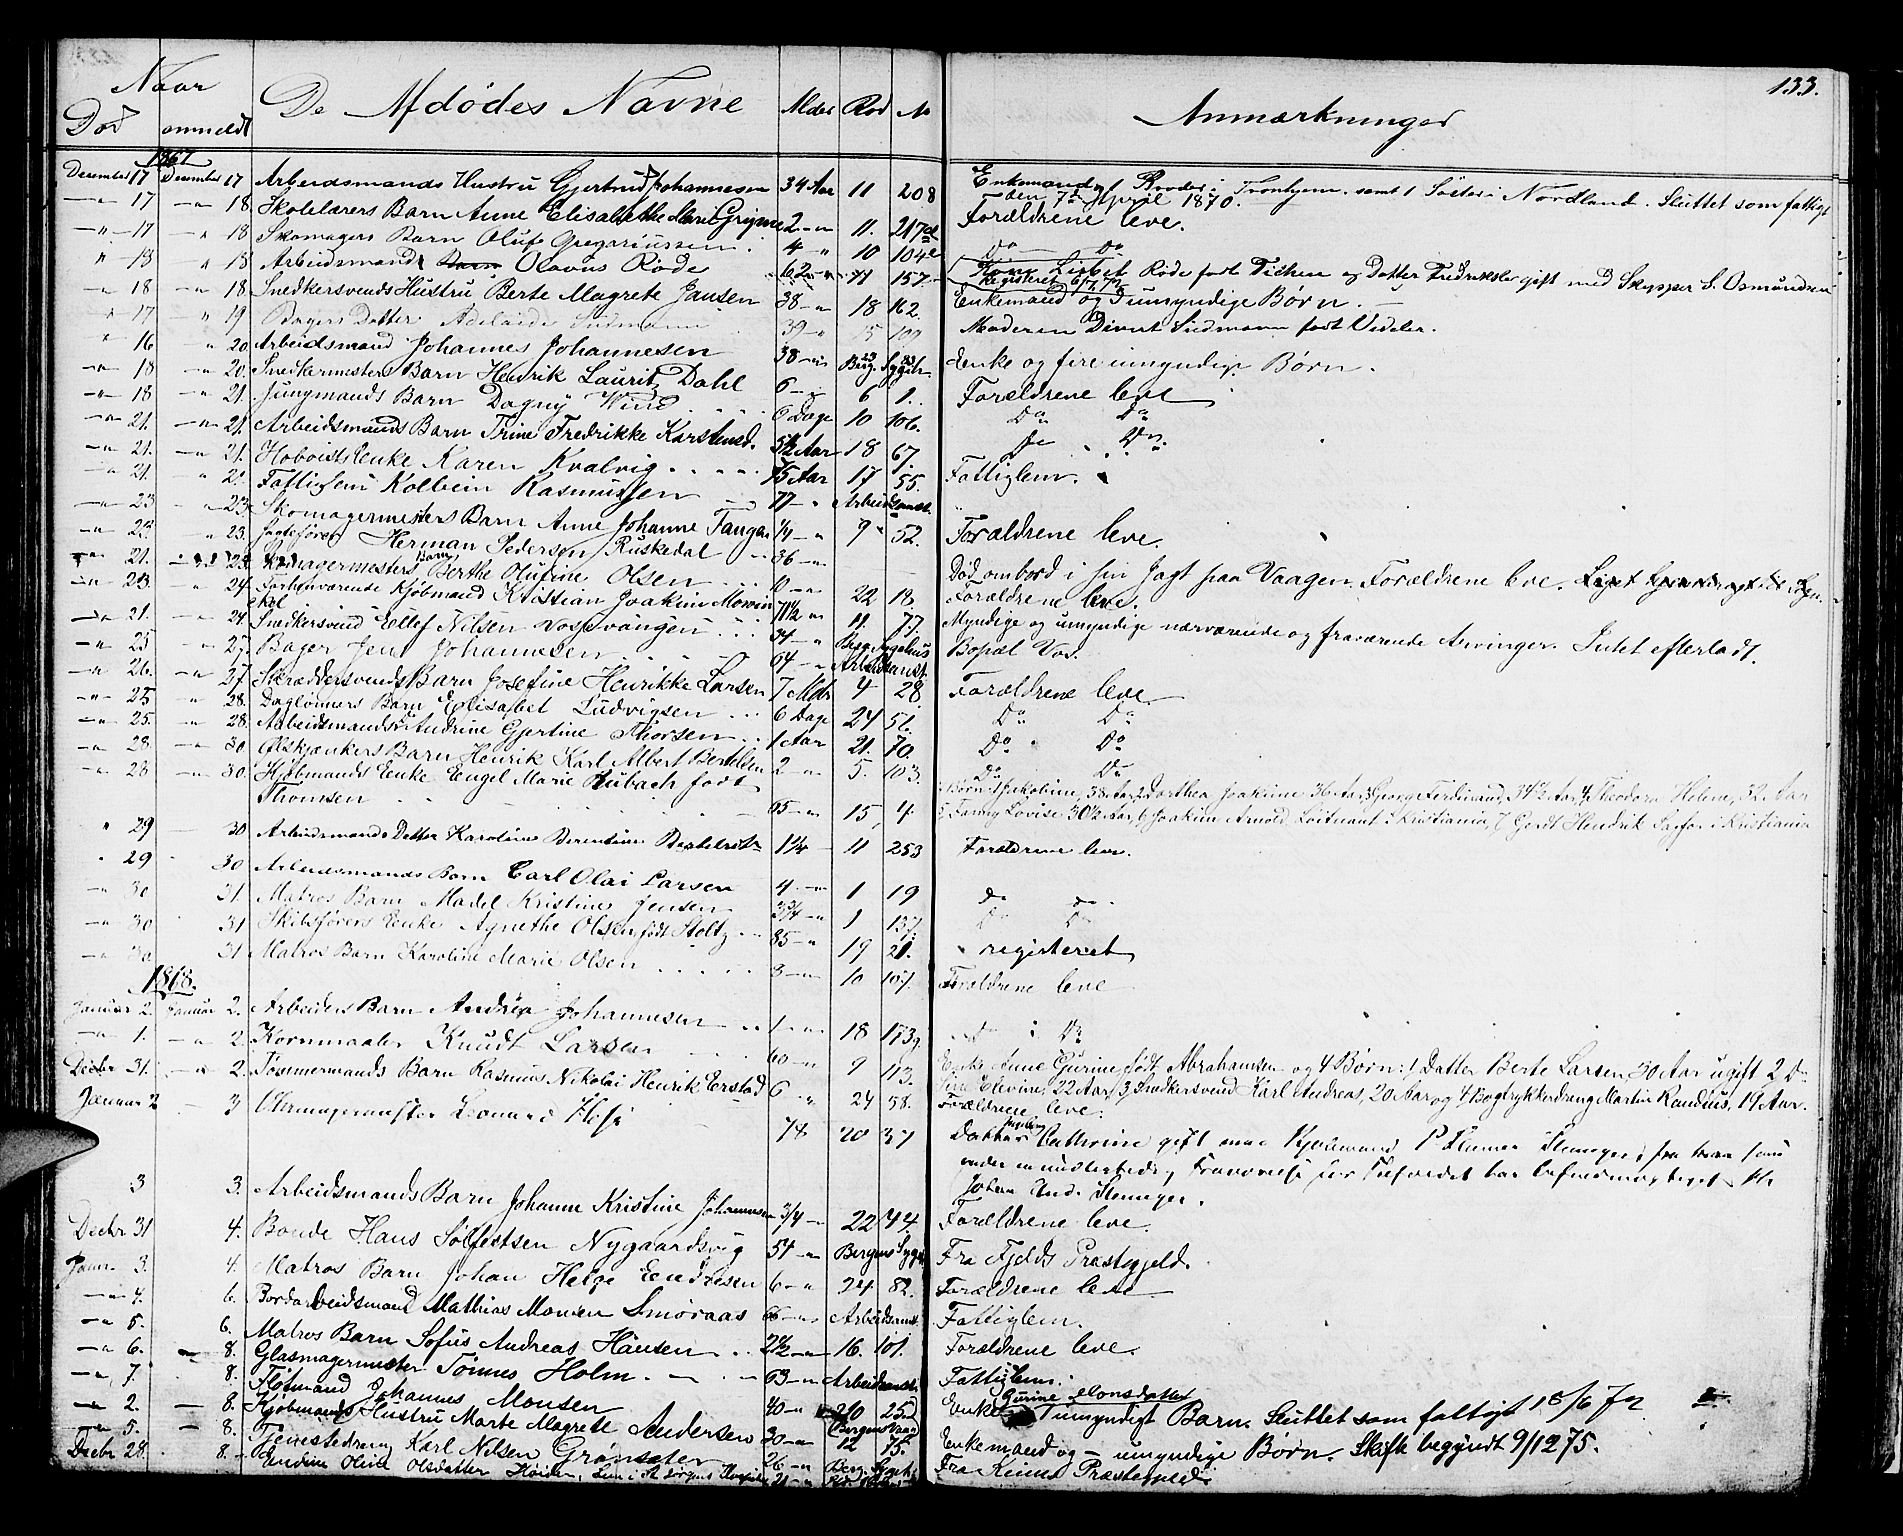 133.
Naar
Død anmeldt De Afdødes Navne Alder Rod No Anmærkninger
1867
December 17 December 17 Arbeidsmands Hustru Gjertrud Johannesen 34 Aar 11 208 Enkemand, Broder i Tronhjem samt 1 Søster i Nordland. Sluttet som fattigt
den 7de April 1870.
17 18 Skolelærers Barn Anne Elisabethe Marie Grigme 2 11. 217 Forældrene leve.
17 18 Skomagers Barn Oluf Gregoriussen 4 10 104 Do Do
18 18 Arbeidsmand Olavus Røde 62 11 157 Kone Lisbet Røde født Tichen og Datter Fredrikke gift med Skipper S. Osmundsen
Registreret 6/1 72
18 18 Snedkersvends Hustru Berte Magrete Jansen 38 18 162. Enkemand og umyndige Børn.
17 19 Bagers Datter Adelaide Sudmann 39 15 109 Moderen Divert Sudmann født Vedeler.
16 20 Arbeidsmand Johannes Johannesen 38 Enke og fire umyndige Børn.
18 20. Snedkermesters Barn Henrik Lauritz Dahl 6 6 1. Forældrene leve
18 21. Jungmands Barn Dagny Wind 6 Dage 10 106. Do Do
21. 21. Arbeidsmands Barn Trine Fredrikke Karstensd. 5½ Aar 18 67. Do Do
21. 21. Hoboist Enke Karen Kvalvig 75 Aar 17 55. Fattiglem.
21. 21. Fattiglem Kolbein Rasmussen 77 Arbeidsanst.
23 23. Skomagermesters Barn Anne Johanne Tangen ¼ 9 52. Forældrene leve.
22. 23. Jagtefører Herman Pedersen Ruskedal 36 Død ombord i sin Jagt paa Vaagen.
21. 23. Skomagermesters Barn Berthe Olufine Olsen 10 22 18. Forældrene leve.
23. 24. Forhenværende Kjøbmand Kristian Joakim Mowinckel 71½ 11. 77. Myndige og umyndige nærværende og fraværende Arvinger. Intet efterladt.
21. 24. Snedkersvend Ellef Nilsen Vossevangen 34 Berg. Sygehus Bopæl Vos.
25 27. Bager Jens Johannesen 64 Arbeidsanst.
26. 27. Skræddersvends Barn Josefine Henrikke Larsen 7 Mdr 4 28 Forældrene leve
25 28. Daglønners Barn Elisabet Ludvigsen 6 Dage 24 51. Do Do
25. 28. Arbeidsmands Do Andrine Gjertine Thorsen 1 Aar 21. 70. Do Do
28. 30. Ølskjænkers Barn Henrik Karl Albert Bertelsen 2 5. 103. Do Do
28 30. Kjøbmands Enke Engel Marie Rubach født Thomsen 65 15, 4. Børn: 1 Jakobine, 38 Aar, 2 Dorthea Joakime 36 Aar, 3 George Ferdinand, 34½ Aar, 4 Theodora Helene, 32 Aar
5 Fanny Lovise 30½ Aar, 6 Joakim Arnold, Løitnant i Kristiania, 7 Gerdt Hendrik Sagfør i Kristiania
29 30 Arbeidsmands Datter Karoline Berentine Bertelsen 1¼ 11 253 Forældrene leve.
29 30 Arbeidsmands Barn Carl Olai Larsen 4. 1 19 do do
30 31. Matros Barn Madel Kristine Jensen 3¾ 1 137. Do Do
30 31 Skibsførers Enke Agnethe Olsen født Stoltz 85 19 21. registeret
30 31 Matros Barn Karoline Marie Olsen 3 10 107. Forældrene leve
1868.
Januar 2. Januar 2. Arbeiders Barn Andrea Johannesen 1 18 173 Do Do
1. 2. Kornmaaler Knudt Larsen 60 9 113. Enke Anne Gurine født Abrahamsen og 4 Børn: 1 Datter Berte Larsen, 30 Aar ugift 2 Do
Elevine, 22 Aar, 3 Snedkersvend Karl Andreas, 20 Aar og 4 Bogtrykkerdreng Martin Randius, 19 Aar.
Decbr 31. 2. Tømmermands Barn Rasmus Nikolai Henrik Erstad 6 24 58. Forældrene leve.
Januar 2 3 Uhrmagermester Leonard 78 20 37 Datter Cathrine gift med Kjøbmand
3 3. Arbeidsmands Barn Johanne Kristine Johannesen 3/4 22 44. Forældrene leve.
Decbr 31 4. Bonde Hans Solfestsen Nygaardsvig 54 Bergens Syge Fra Fjelds Præstegjeld.
Janr 3. 4. Matros Barn Johan Helge Endresen 6 24 82. Forældrene leve
4. 6. Bordarbeidsmand Mathias Monsen Smøraas 66 Arbeidsanst. Fattiglem.
5. 6. Matros Barn Sofus Andreas Hansen 2½ 16. 101. Forældrene leve.
6. 8. Glasmagermester Tønnes Holm 63 Arbeidsanst. Fattiglem.
7. 8. Fløtmand Johannes Monsen 40 20 25 Enke Gurine Monsdatter 1 umyndigt Barn. Sluttet som fattigt 18/6 72
2. 8. Kjøbmands Hustru Marte Magrete Andersen 30 12 75. Enkemand og umyndige Børn. Skifte begyndt 9/12 75.
5. 8. Tjenestedreng Karl Nilsen Grønsater 26 Berg. Sygeh. Fra Kinns Præstegjeld.
Decbr 28. 8. Oline Olsdatter Høiden, Lem i St. Jørgens Hospital 21